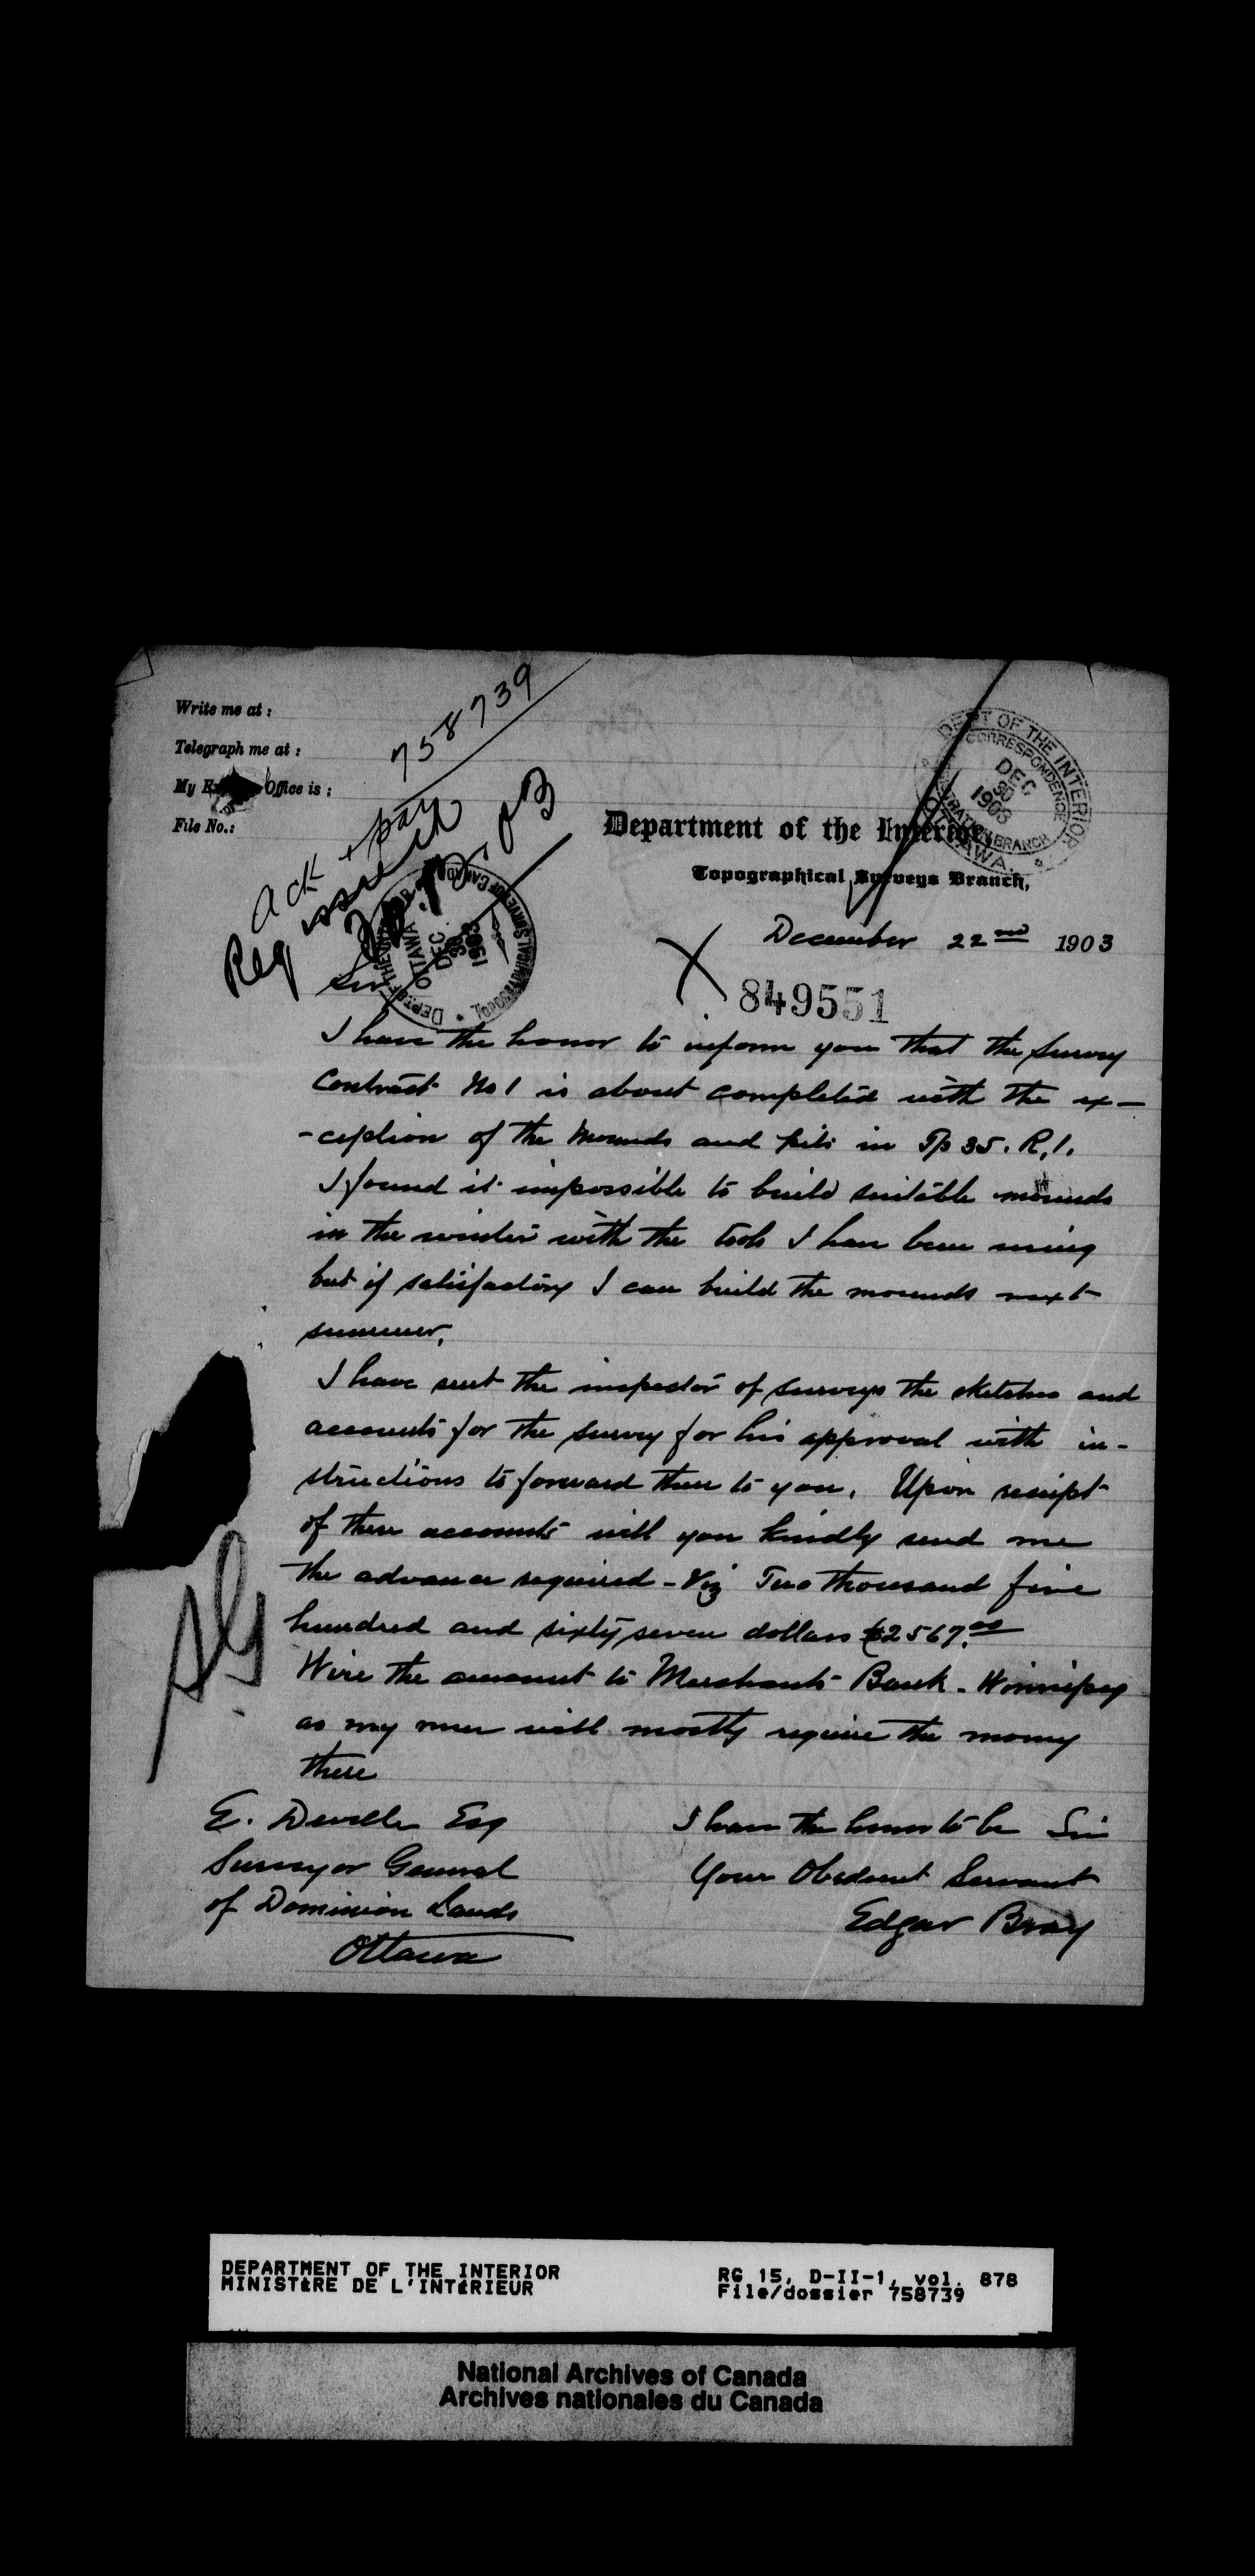 Write me at :
Telegraph me at :
My Ex Office is :
File No.:
758739
Ack + pay
Reg
DEPT OF THE INTERIOR
CORRESPONDENCE
DEC
30
1903
BRANCH
OTTAWA.
Department of the Interior,
Topographical Surveys Branch,
OTTAWA
DEC
30
1903
December 22nd 1903
849551
Sir
I have the honor to inform you that the survey
contract No 1 is about completed with the ex-
-ception of the mounds and pits in Tp 35. R.1.
I found it impossible to build suitable mounds
in the winter with the tools I have been using
but if satisfactory I can build the mounds next
summer.
I have sent the inspector of surveys the sketches and
accounts for the survey for his approval with in-
structions to forward them to you. Upon receipt
of these accounts will you kindly send me
the advance required - Viz Two thousand five
hundred and sixty seven dollars $2567.00
Wire the amount to Merchants Bank - Winnipeg
as my men will mostly require the money
there
I have the honor to be Sir
Your Obedient Servant
Edgar Bray
E. Deville Esq
Surveyor General
of Dominion Lands
Ottawa
DEPARTMENT OF THE INTERIOR
MINISTÈRE DE L'INTÉRIEUR
RG 15, D-II-1, vol. 878
File/dossier 758739
National Archives of Canada
Archives nationales du Canada